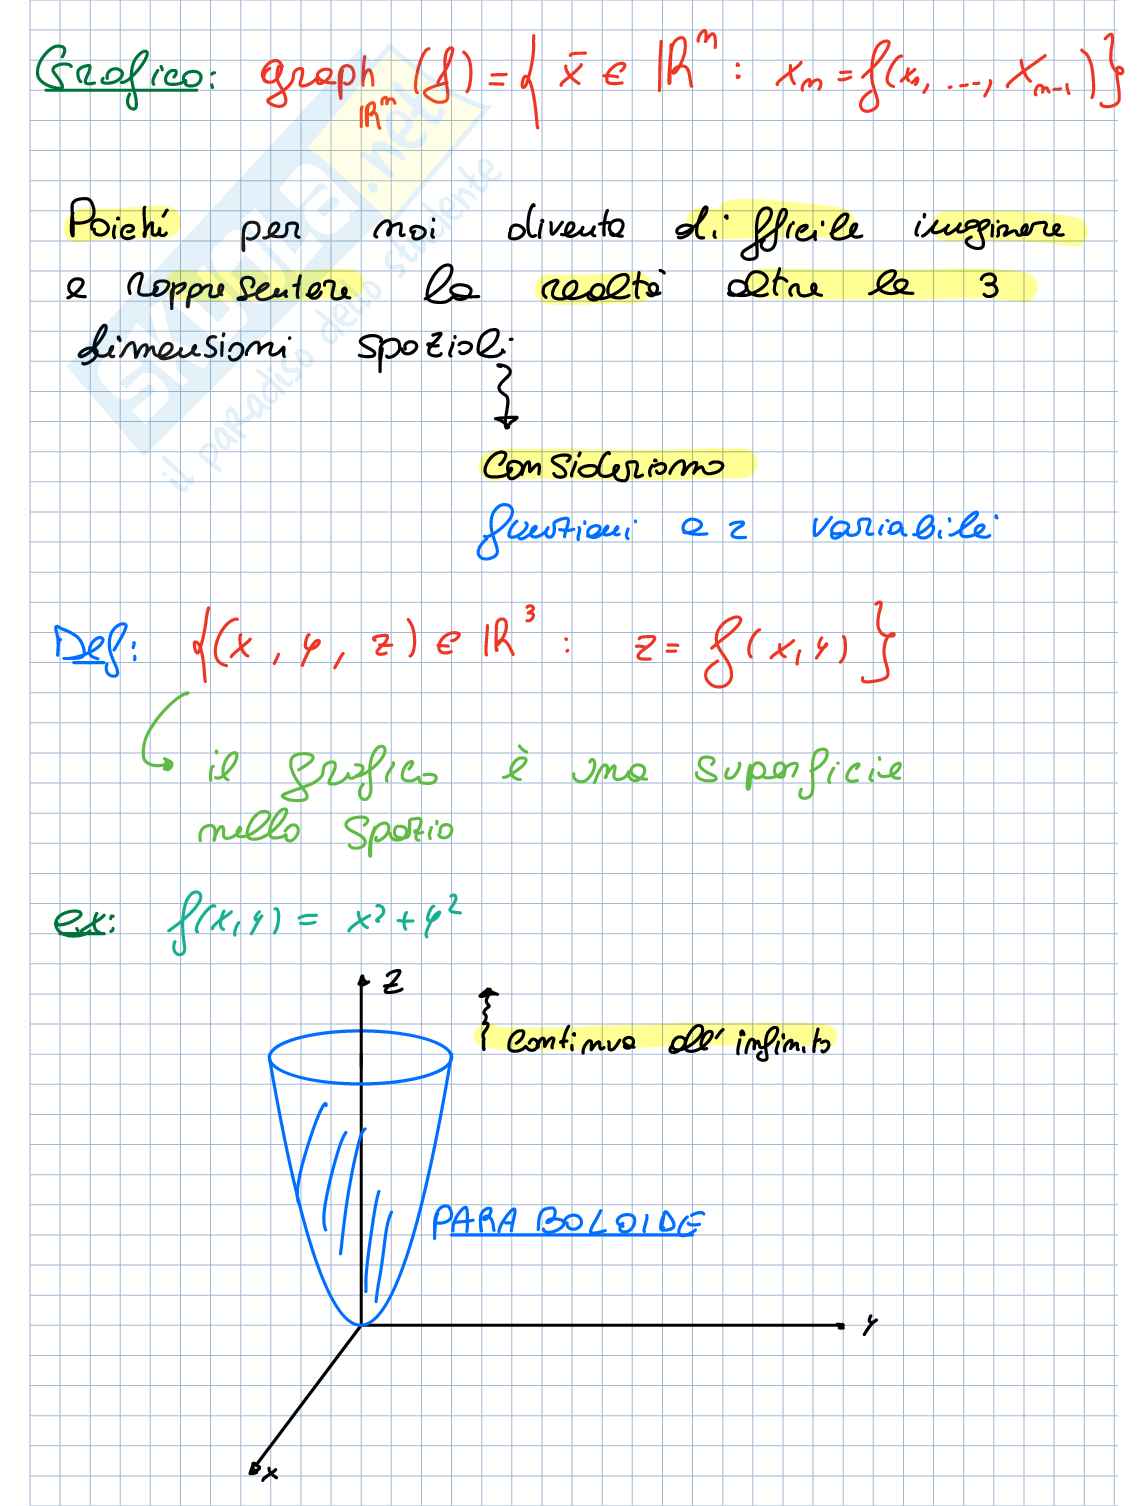 Grafico: graph ℝⁿ (f) = { x̄ ∈ ℝⁿ : xₙ = f(x₁, ..., xₙ₋₁) }
Poiché per noi diventa difficile immaginare
e rappresentare la realtà oltre le 3
dimensioni spaziali
Consideriamo
funzioni a 2 variabili
Def: {(x, y, z) ∈ ℝ³ : z = f(x,y)}
il grafico è una superficie
nello spazio
ex: f(x,y) = x² + y²
z
continua all'infinito
PARABOLOIDE
y
x
SKUOLA.net
il paradiso dello studente